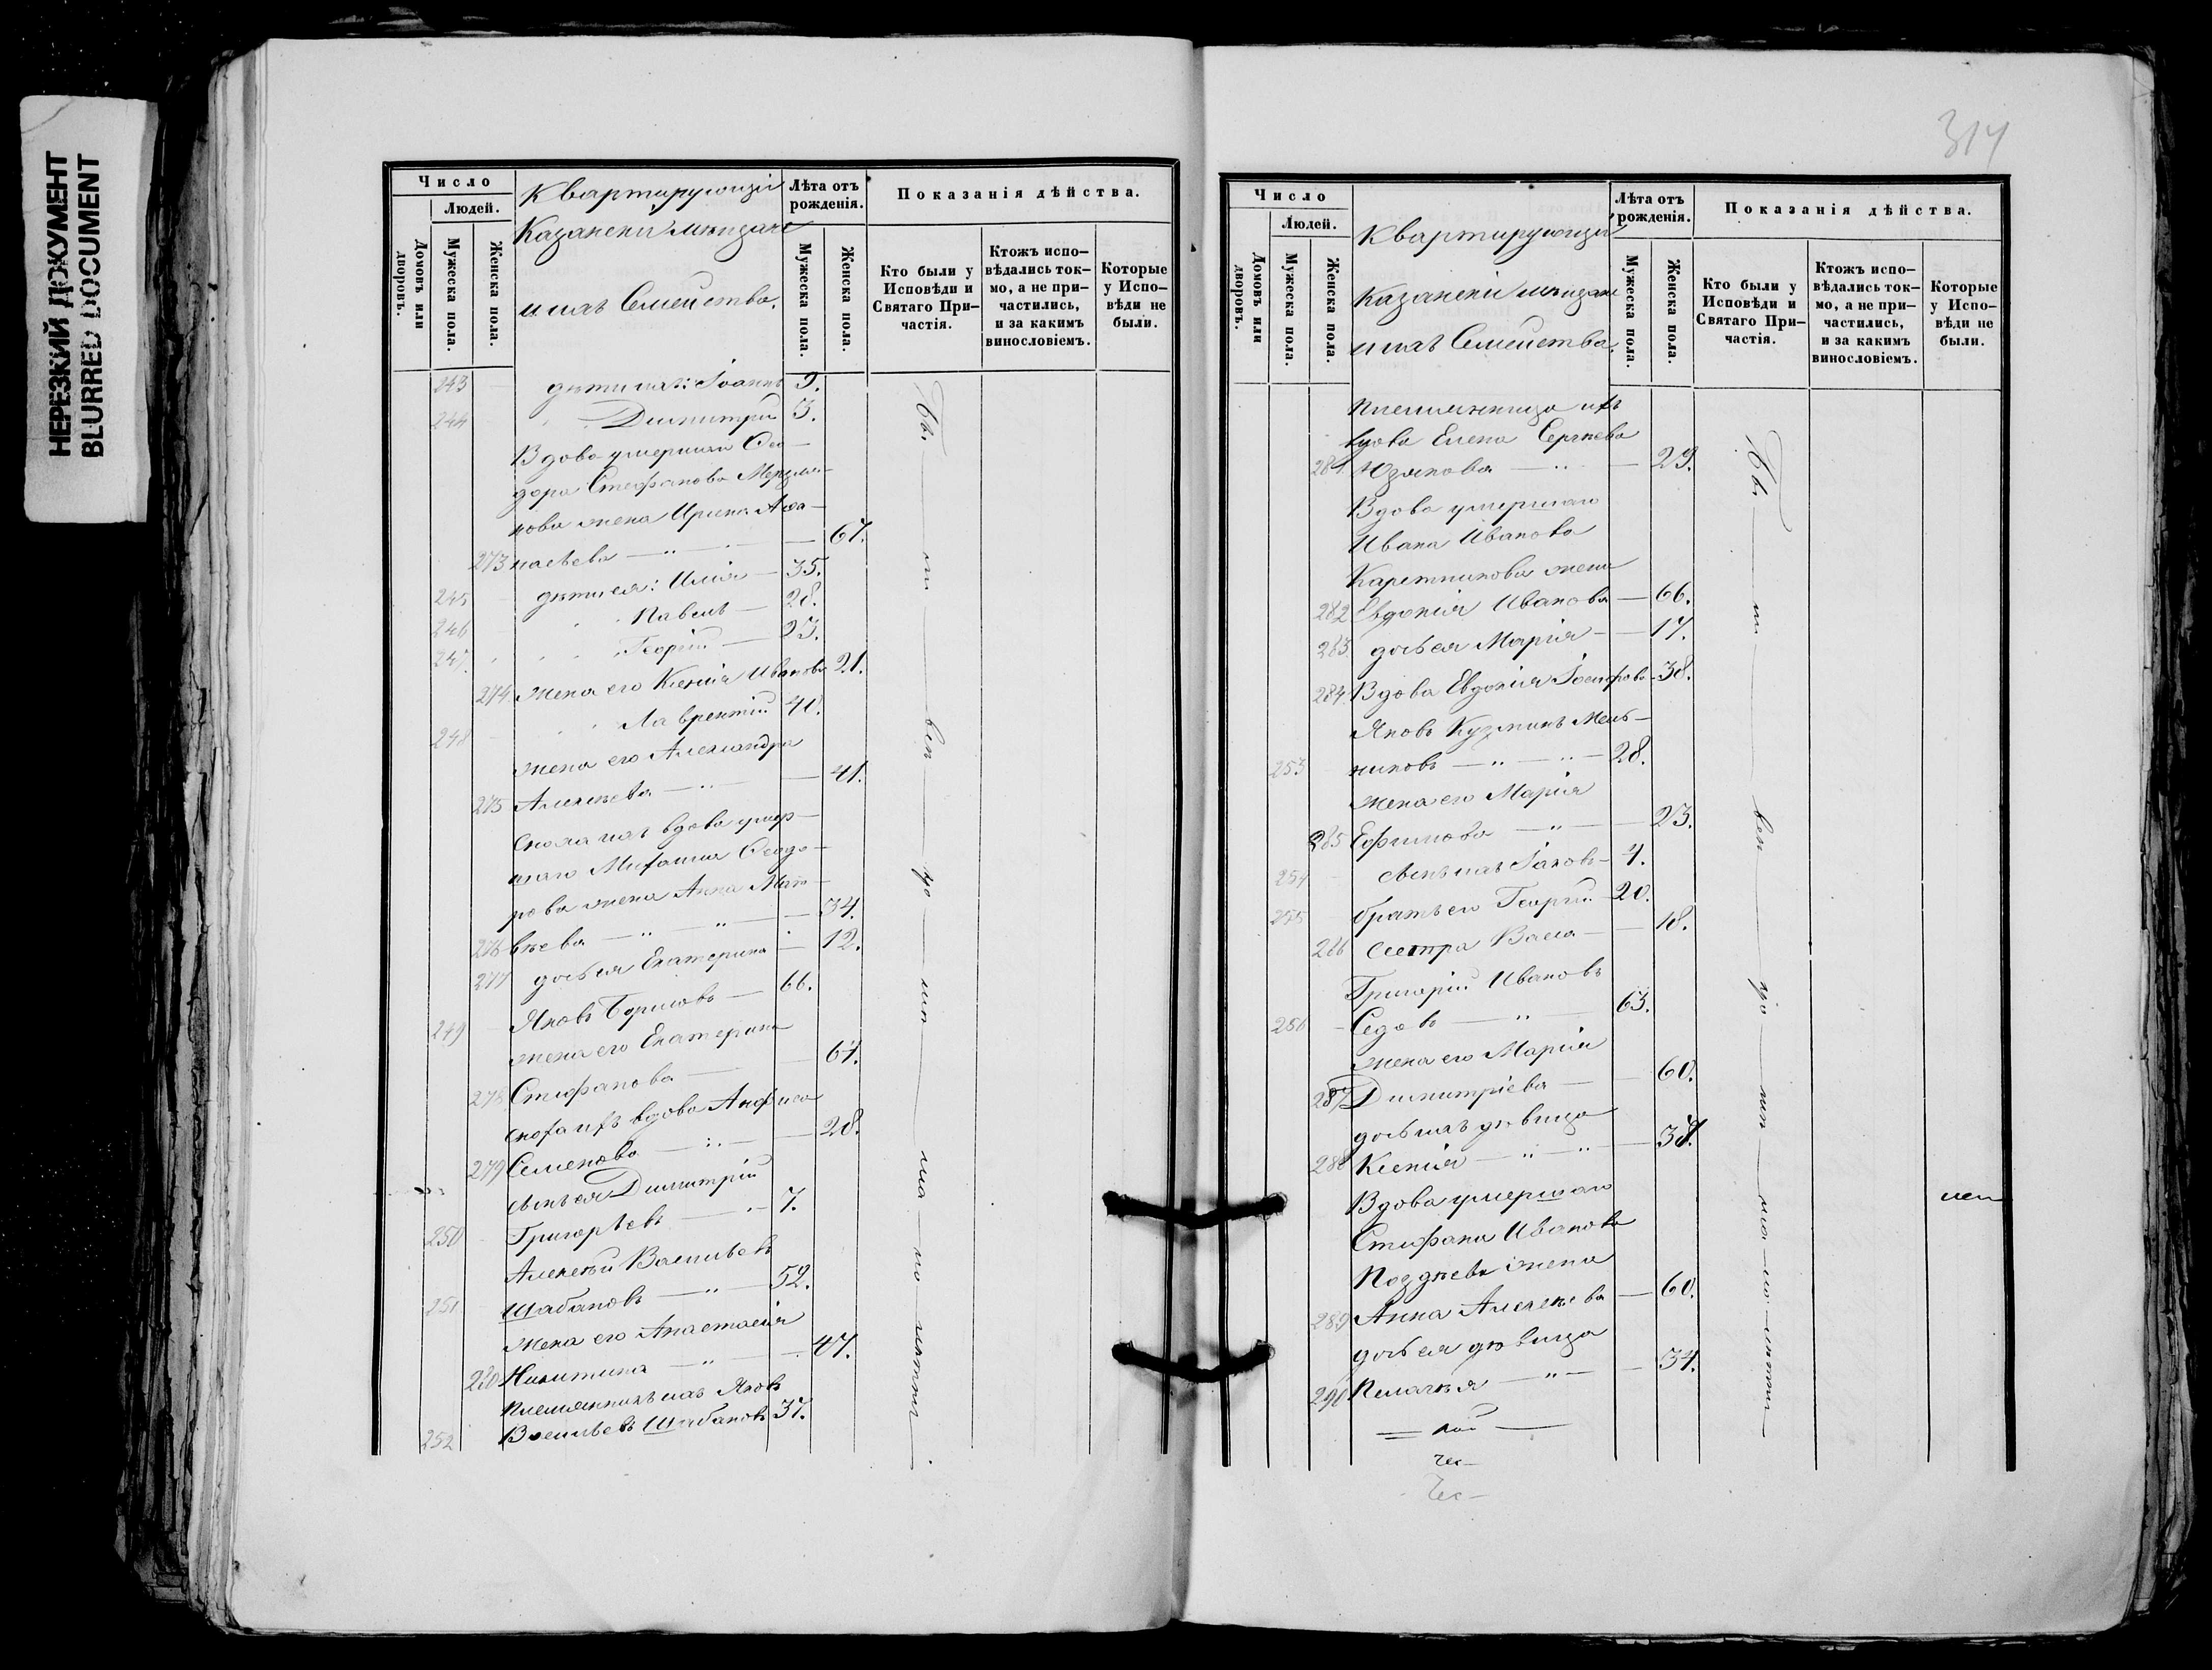 НЕРЕЗКИЙ ДОКУМЕНТ
BLURRED DOCUMENT
Число
Людей.
Домовъ или дворовъ.
Мужеска пола.
Женска пола.
Квартирующіи
Казанскіи мѣщане
и ихъ Семейства.
Лѣта отъ рожденія.
Мужеска пола.
Женска пола.
Показанія дѣйства.
Кто были у Исповѣди и Святаго При-частія.
Ктожъ испо-вѣдались ток-мо, а не при-частились, и за какимъ винословіемъ.
Которые у Испо-вѣди не были.
243 дѣти ихъ: Іоаннъ 9.
244 Димитрій 3.
Вдова умершаго Ѳео-
дора Стефанова
жена Ирина Аѳа-
273 насьева 67.
245 дѣти ея: Илія 35.
246 Павелъ 28.
247 Георгій 23.
274 жена его Ксенія Иванова 21.
248 Лаврентій 40.
жена его Александра
275 Алексѣева 41.
сноха ихъ вдова умер-
шаго Михаила Ѳеодо-
рова жена Анна Мат-
276 вѣева 34.
277 дочь ея Екатерина 12.
249 Яковъ Борисовъ 66.
жена его Екатерина
278 Стефанова 64.
сноха ихъ вдова Анфиса
279 Семенова 28.
сынъ ея Димитрій
250 Григорьевъ 7.
Алексѣй Васильевъ
251 Шабановъ 52.
жена его Анастасія
280 Никитина 47.
племянникъ ихъ Яковъ
252 Васильевъ Шабановъ 37.
314
Число
Людей.
Домовъ или дворовъ.
Мужеска пола.
Женска пола.
Квартирующіи
Казанскіи мѣщане
и ихъ Семейства.
Лѣта отъ рожденія.
Мужеска пола.
Женска пола.
Показанія дѣйства.
Кто были у Исповѣди и Святаго При-частія.
Ктожъ испо-вѣдались ток-мо, а не при-частились, и за какимъ винословіемъ.
Которые у Испо-вѣди не были.
племянница ихъ
вдова Елена Сергѣева
281 29.
Вдова умершаго
Ивана Иванова
Каретникова жена
282 Евдокія Иванова 66.
283 дочь ея Марія 17.
284 Вдова Евдокія Іосифова 38.
Яковъ Кузминъ Мель-
253 никовъ 28.
жена его Марія
285 Ефимова 23.
254 сынъ ихъ Іаковъ 4.
255 братъ его Георгій 20.
286 сестра Васса 18.
Григорій Ивановъ
256 Седовъ 63.
жена его Марія
287 Димитріева 60.
дочь ихъ дѣвица
288 Ксенія 38.
Вдова умершаго
Стефана Иванова
Позднева жена
289 Анна Алексѣева 60.
дочь ея дѣвица
290 Пелагія 34.